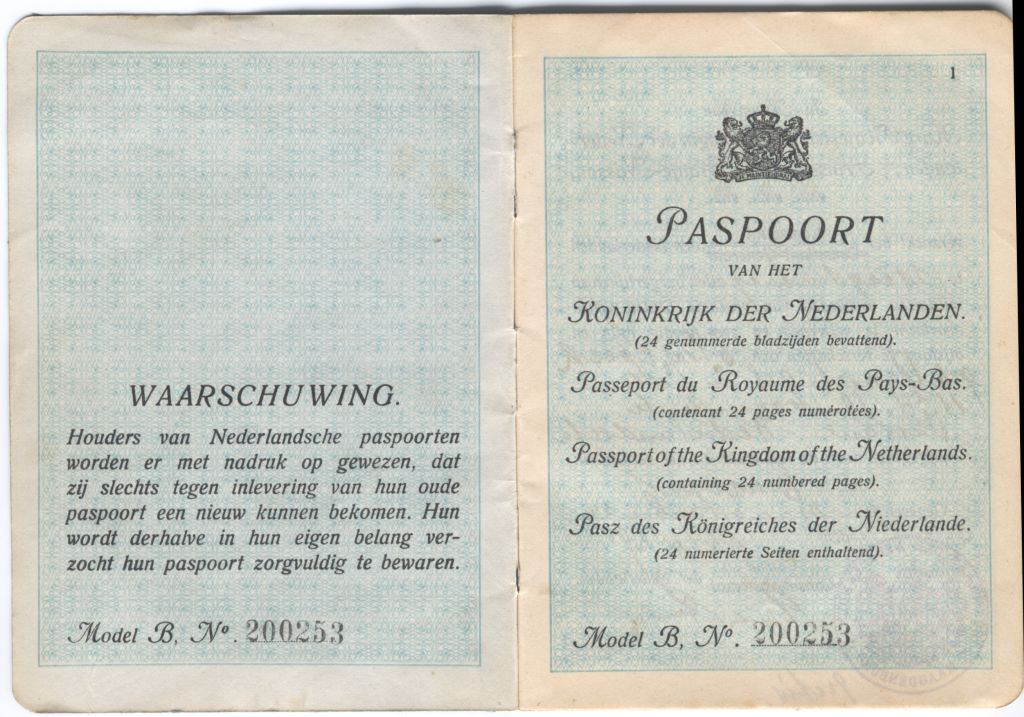 WAARSCHUWING.
Houders van Nederlandsche paspoorten
worden er met nadruk op gewezen, dat
zij slechts tegen inlevering van hun oude
paspoort een nieuw kunnen bekomen. Hun
wordt derhalve in hun eigen belang ver-
zocht hun paspoort zorgvuldig te bewaren.
Model B, Nº. 200253
1
PASPOORT
VAN HET
KONINKRIJK DER NEDERLANDEN.
(24 genummerde bladzijden bevattend).
Passeport du Royaume des Pays-Bas.
(contenant 24 pages numérotées).
Passport of the Kingdom of the Netherlands.
(containing 24 numbered pages).
Pasz des Königreiches der Niederlande.
(24 numerierte Seiten enthaltend).
Model B, Nº. 200253